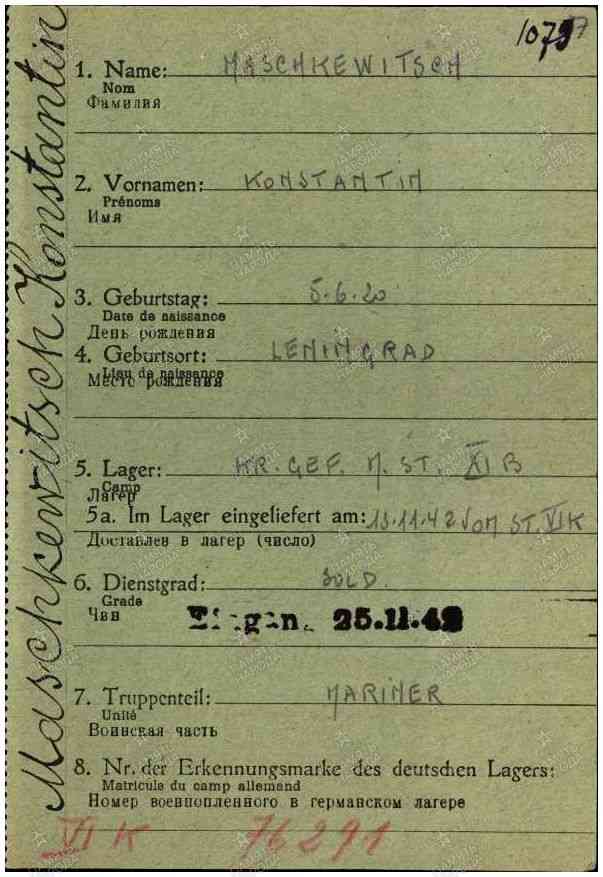 10797
1. Name: MASCHKEWITSCH
Nom
Фамилия
2. Vornamen: KONSTANTIN
Prénoms
Имя
3. Geburtstag: 5.6.20
Date de naissance
День рождения
4. Geburtsort: LENINGRAD
Lieu de naissance
Место рождения
5. Lager: KR. GEF. M. ST. XI B
Camp
Лагерь
5a. Im Lager eingeliefert am: 13.11.42 VOM ST. VI K
Доставлен в лагерь (число)
6. Dienstgrad: SOLD.
Grade
Чин
Eingang. 25.11.42
7. Truppenteil: MARINER
Unité
Воинская часть
8. Nr. der Erkennungsmarke des deutschen Lagers:
Matricule du camp allemand
Номер военнопленного в германском лагере
VI K 76291
Maschkewitsch Konstantin
ПАМЯТЬ НАРОДА